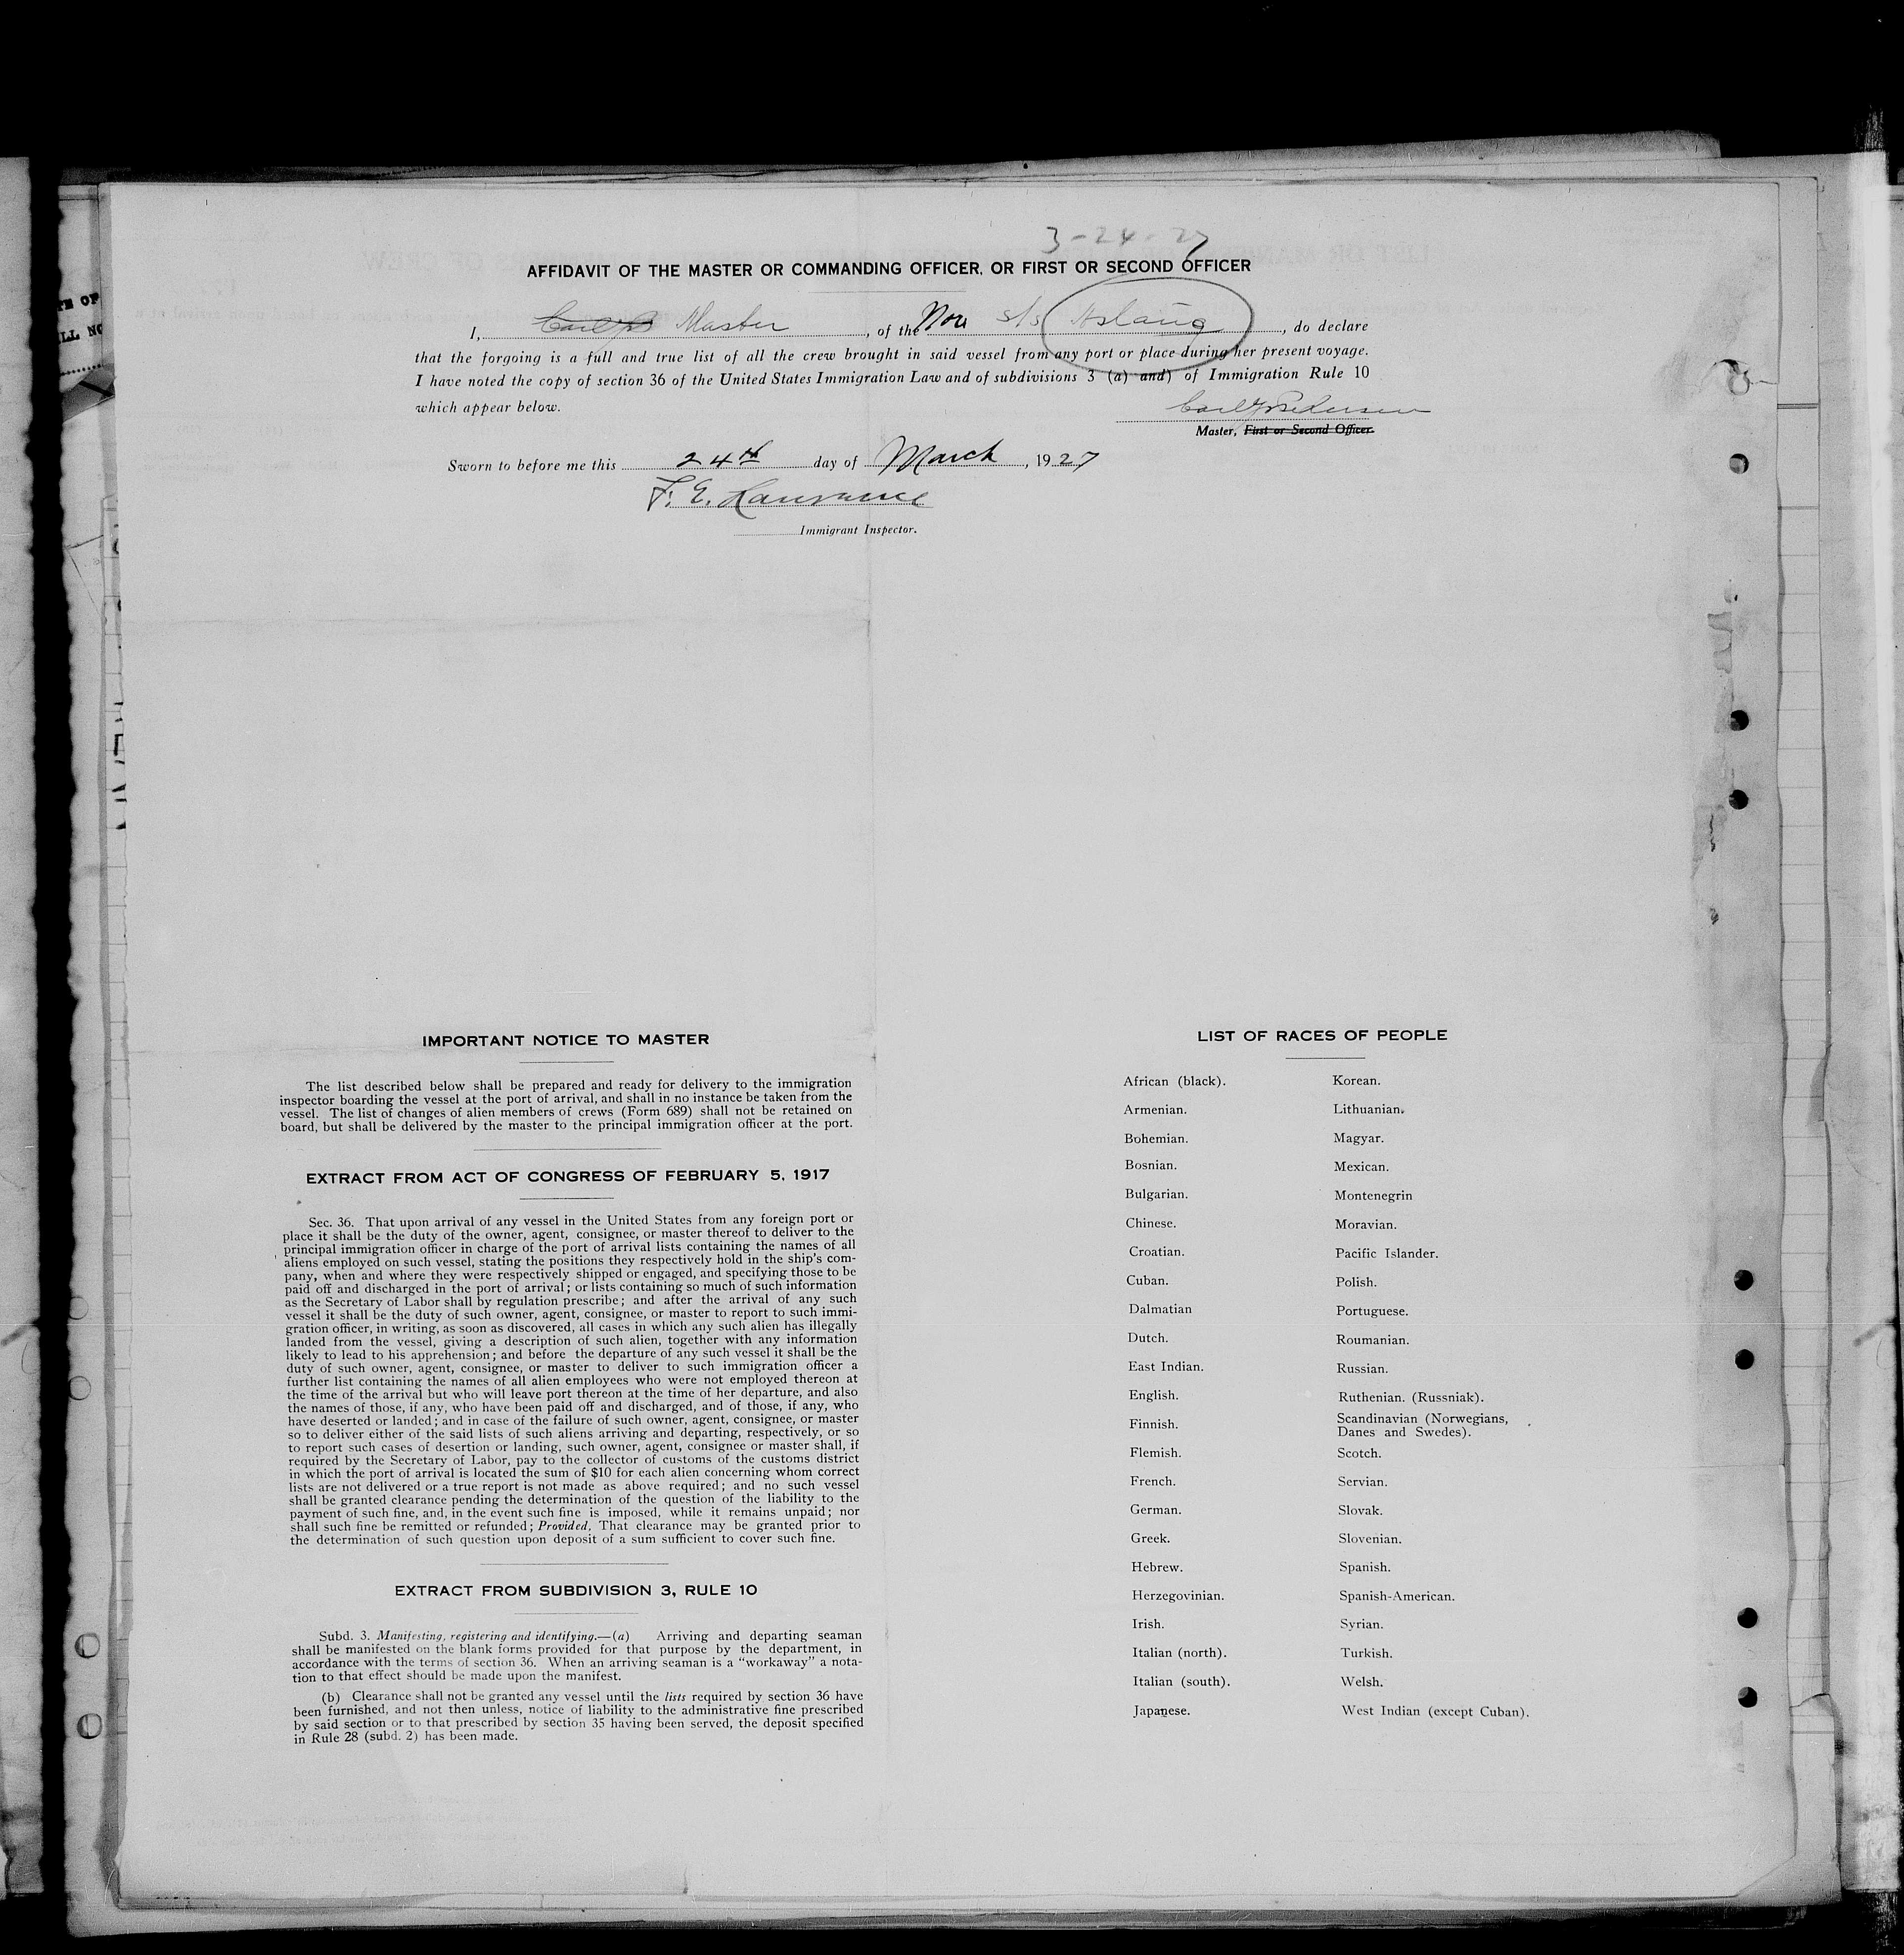 3-24-27
AFFIDAVIT OF THE MASTER OR COMMANDING OFFICER, OR FIRST OR SECOND OFFICER
I, Master, of the Nor s/s Aslaug, do declare
that the forgoing is a full and true list of all the crew brought in said vessel from any port or place during her present voyage.
I have noted the copy of section 36 of the United States Immigration Law and of subdivisions 3 (a) and) of Immigration Rule 10
which appear below.
Carl Pedersen
Master, First or Second Officer.
Sworn to before me this 24th day of March, 1927
F. E. Lawrance
Immigrant Inspector.
IMPORTANT NOTICE TO MASTER
The list described below shall be prepared and ready for delivery to the immigration
inspector boarding the vessel at the port of arrival, and shall in no instance be taken from the
vessel. The list of changes of alien members of crews (Form 689) shall not be retained on
board, but shall be delivered by the master to the principal immigration officer at the port.
EXTRACT FROM ACT OF CONGRESS OF FEBRUARY 5, 1917
Sec. 36. That upon arrival of any vessel in the United States from any foreign port or
place it shall be the duty of the owner, agent, consignee, or master thereof to deliver to the
principal immigration officer in charge of the port of arrival lists containing the names of all
aliens employed on such vessel, stating the positions they respectively hold in the ship's com-
pany, when and where they were respectively shipped or engaged, and specifying those to be
paid off and discharged in the port of arrival; or lists containing so much of such information
as the Secretary of Labor shall by regulation prescribe; and after the arrival of any such
vessel it shall be the duty of such owner, agent, consignee, or master to report to such immi-
gration officer, in writing, as soon as discovered, all cases in which any such alien has illegally
landed from the vessel, giving a description of such alien, together with any information
likely to lead to his apprehension; and before the departure of any such vessel it shall be the
duty of such owner, agent, consignee, or master to deliver to such immigration officer a
further list containing the names of all alien employees who were not employed thereon at
the time of the arrival but who will leave port thereon at the time of her departure, and also
the names of those, if any, who have been paid off and discharged, and of those, if any, who
have deserted or landed; and in case of the failure of such owner, agent, consignee, or master
so to deliver either of the said lists of such aliens arriving and departing, respectively, or so
to report such cases of desertion or landing, such owner, agent, consignee or master shall, if
required by the Secretary of Labor, pay to the collector of customs of the customs district
in which the port of arrival is located the sum of $10 for each alien concerning whom correct
lists are not delivered or a true report is not made as above required; and no such vessel
shall be granted clearance pending the determination of the question of the liability to the
payment of such fine, and, in the event such fine is imposed, while it remains unpaid; nor
shall such fine be remitted or refunded; Provided, That clearance may be granted prior to
the determination of such question upon deposit of a sum sufficient to cover such fine.
EXTRACT FROM SUBDIVISION 3, RULE 10
Subd. 3. Manifesting, registering and identifying.—(a) Arriving and departing seaman
shall be manifested on the blank forms provided for that purpose by the department, in
accordance with the terms of section 36. When an arriving seaman is a "workaway" a nota-
tion to that effect should be made upon the manifest.
(b) Clearance shall not be granted any vessel until the lists required by section 36 have
been furnished, and not then unless, notice of liability to the administrative fine prescribed
by said section or to that prescribed by section 35 having been served, the deposit specified
in Rule 28 (subd. 2) has been made.
LIST OF RACES OF PEOPLE
African (black).
Armenian.
Bohemian.
Bosnian.
Bulgarian.
Chinese.
Croatian.
Cuban.
Dalmatian
Dutch.
East Indian.
English.
Finnish.
Flemish.
French.
German.
Greek.
Hebrew.
Herzegovinian.
Irish.
Italian (north).
Italian (south).
Japanese.
Korean.
Lithuanian.
Magyar.
Mexican.
Montenegrin
Moravian.
Pacific Islander.
Polish.
Portuguese.
Roumanian.
Russian.
Ruthenian. (Russniak).
Scandinavian (Norwegians,
Danes and Swedes).
Scotch.
Servian.
Slovak.
Slovenian.
Spanish.
Spanish-American.
Syrian.
Turkish.
Welsh.
West Indian (except Cuban).